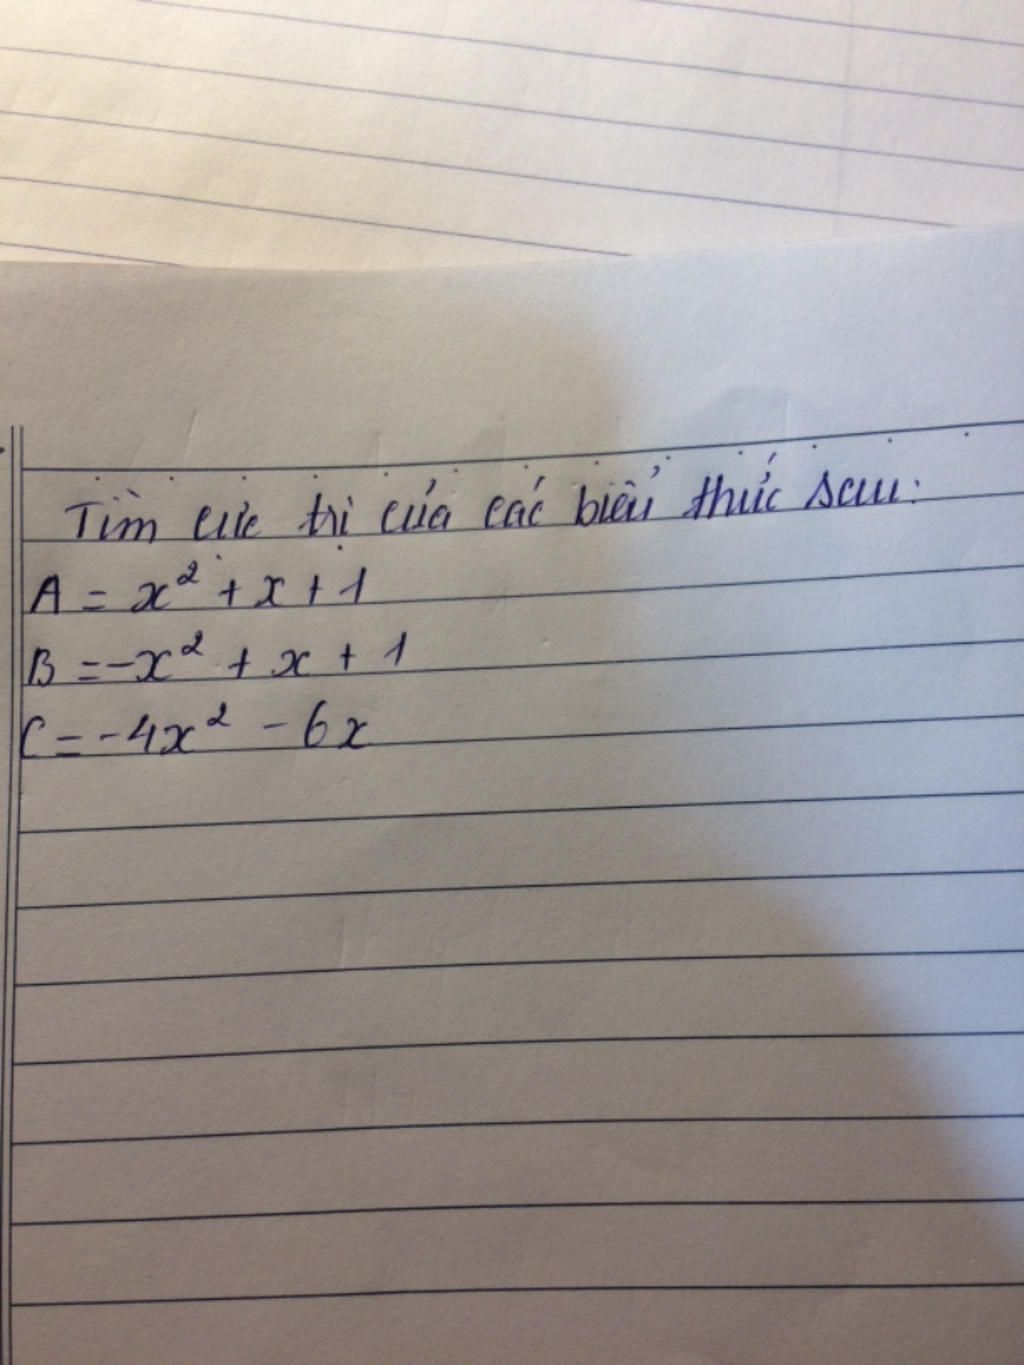 Tìm cực trị của các biểu thức sau:
A = x² + x + 1
B = -x² + x + 1
C = -4x² - 6x